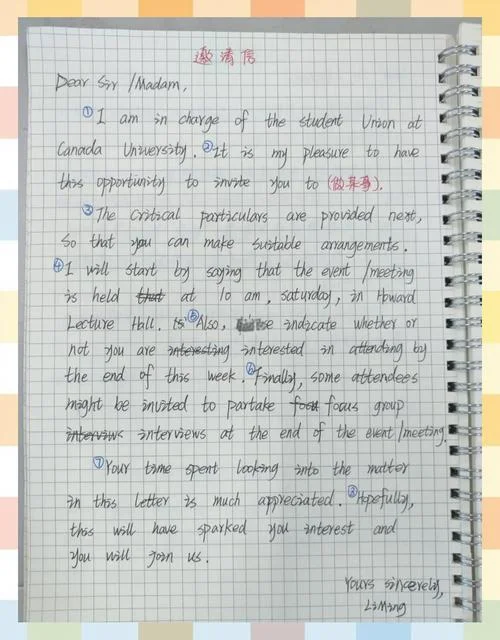 邀请信
Dear Sir /Madam,
①I am in charge of the student Union at
Canada University. ②It is my pleasure to have
this opportunity to invite you to (做某事).
③The critical particulars are provided next,
so that you can make suitable arrangements.
④I will start by saying that the event /meeting
is held that at 10 am, saturday, in Howard
Lecture Hall. is ⑤Also, indicate whether or
not you are interesting interested in attending by
the end of this week. ⑥Finally, some attendees
might be invited to partake focu focus group
interviws interviews at the end of the event /meeting.
⑦Your time spent looking into the matter
in this letter is much appreciated. ⑧Hopefully,
this will have sparked you interest and
you will join us.
Yours sincerely,
LiMing